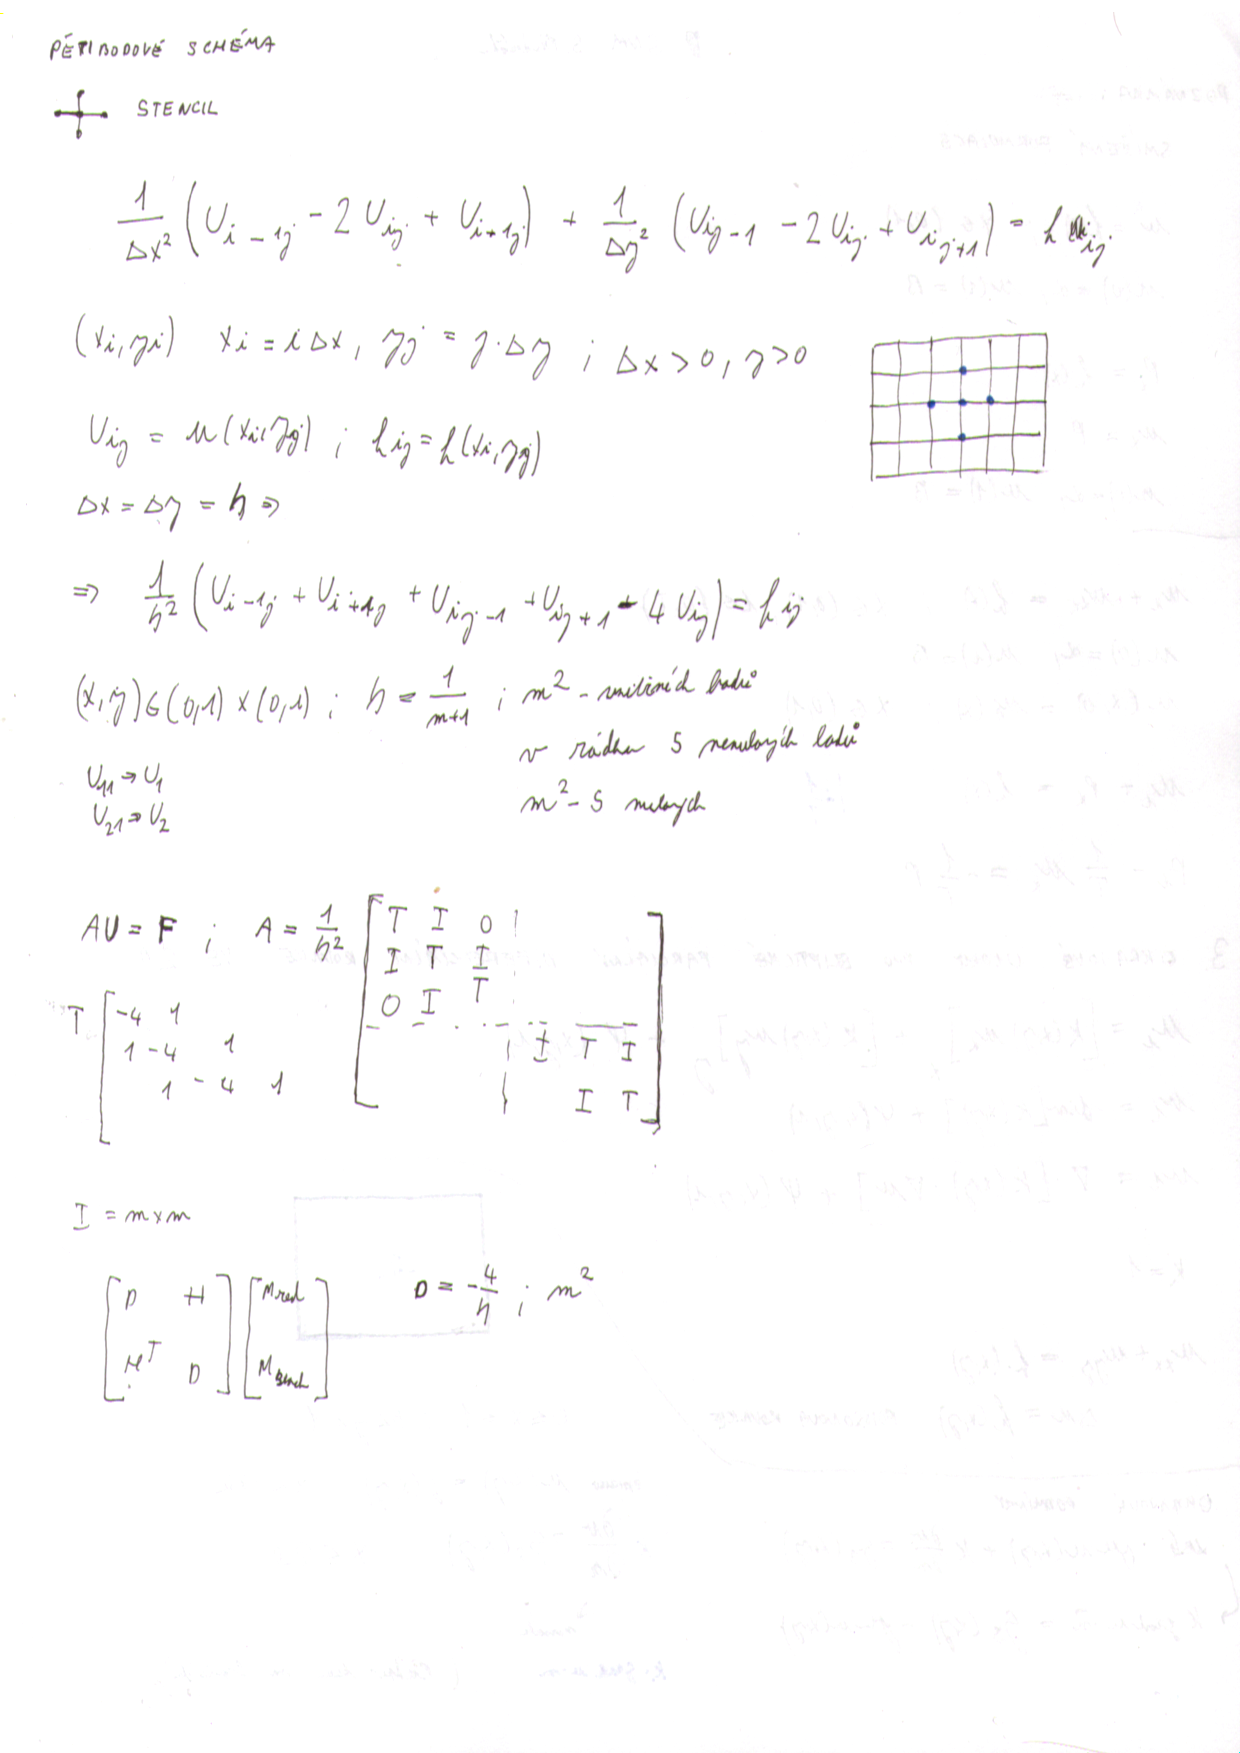 PĚTIBODOVÉ SCHÉMA
STENCIL
1/Δx² (U_{i-1j} - 2U_{ij} + U_{i+1j}) + 1/Δy² (U_{ij-1} - 2U_{ij} + U_{ij+1}) = f_{ij}
(x_i, y_i) x_i = iΔx, y_j = j·Δy ; Δx > 0, y > 0
U_{ij} = u(x_i, y_j) ; f_{ij} = f(x_i, y_j)
Δx = Δy = h ⇒
⇒ 1/h² (U_{i-1j} + U_{i+1j} + U_{ij-1} + U_{ij+1} - 4U_{ij}) = f_{ij}
(x, y) ∈ (0,1) × (0,1) ; h = 1/(m+1) ; m² - vnitřních bodů
v řádku 5 nenulových bodů
m² - 5 nulových
U_{11} → U_1
U_{21} → U_2
AU = F ; A = 1/h²
T I 0
I T I
0 I T
I T I
I T
T
-4 1
1 -4 1
1 -4 1
I = m×m
D H
H^T D
u_{red}
D = -4/h ; m²